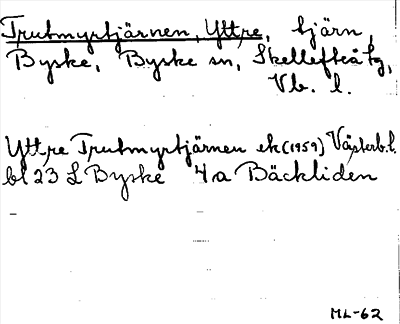 Trutmyrtjärnen, Yttre, tjärn
Byske, Byske sn, Skellefteå tg,
Vb. l.
Yttre Trutmyrtjärnen ek (1959) Västerb. l.
bl 23 L Byske 4a Bäckliden
ML-62